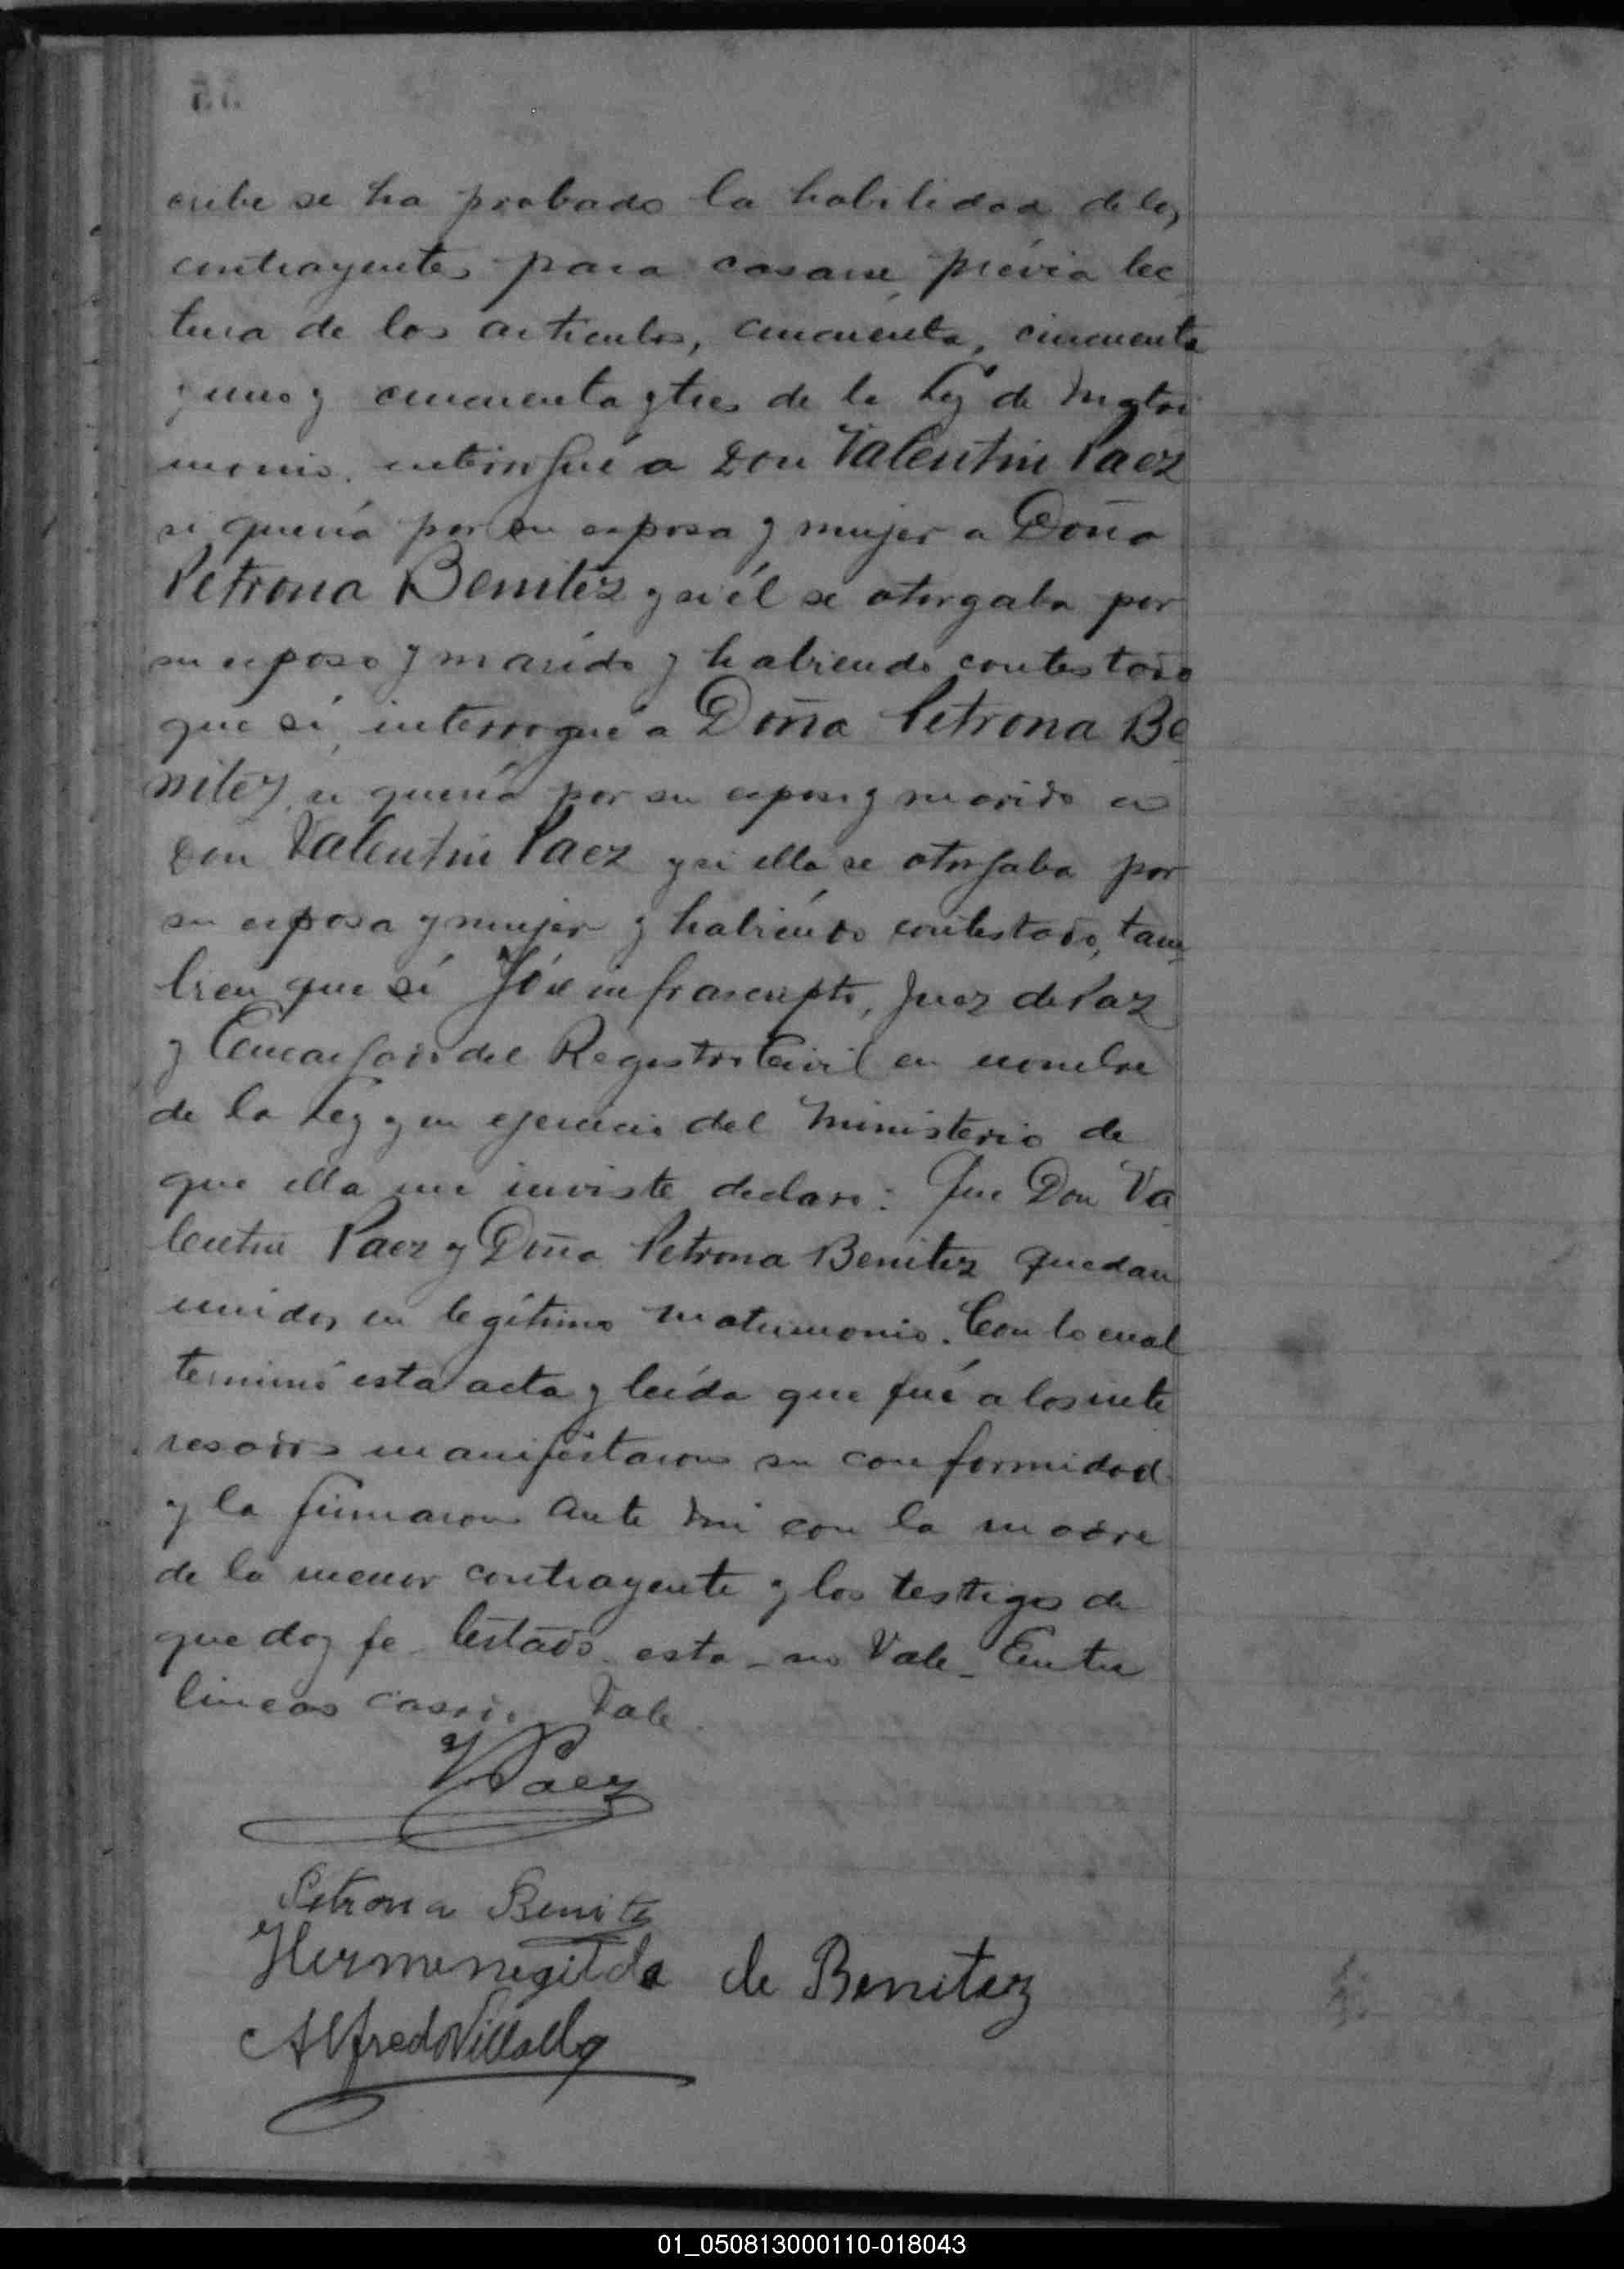 cribe se ha probado la habilidad de los
contrayentes para casarse, prévia lec
tura de los articulos, cincuenta, cincuenta
y uno y cincuenta y tres de la Ley de Matri
monio, interrogué a Don Valentin Paez
si queria por su esposa y mujer a Doña
Petrona Benitez y si él se otorgaba por
su esposo y marido y habiendo contestado
que sí, interrogué a Doña Petrona Be
nitez, si queria por su esposo y marido a
Don Valentin Paez y si ella se otorgaba por
su esposa y mujer y habiendo contestado, tam
bien que sí Yó el infrascripto, Juez de Paz
y Encargado del Registro Civil en nombre
de la Ley y en ejercicio del Ministerio de
que ella me inviste declaro: Que Don Va
lentin Paez y Doña Petrona Benitez quedan
unidos en legítimo matrimonio. Con lo cual
terminó esta acta y leída que fué a los inte
resados manifestaron su conformidad
y la firmaron ante mi con la madre
de la menor contrayente y los testigos de
que doy fe. Testado - esta - no Vale - Entre
lineas Vale.
V Paez
Petrona Benitez
Hermenegilda de Benitez
Alfredo
01_050813000110-018043